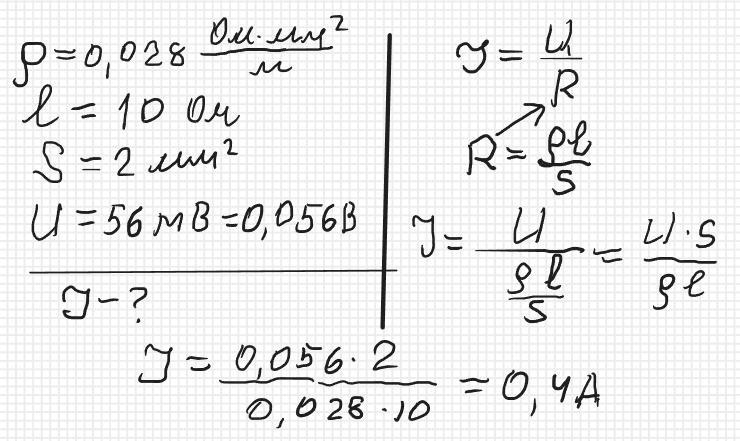 ρ = 0,028 Ом·мм²/м
l = 10 Ом
S = 2 мм²
U = 56 мВ = 0,056В
I - ?
I = U/R
R = ρl/S
I = U/(ρl/S) = U·S/ρl
I = 0,056·2/0,028·10 = 0,4А